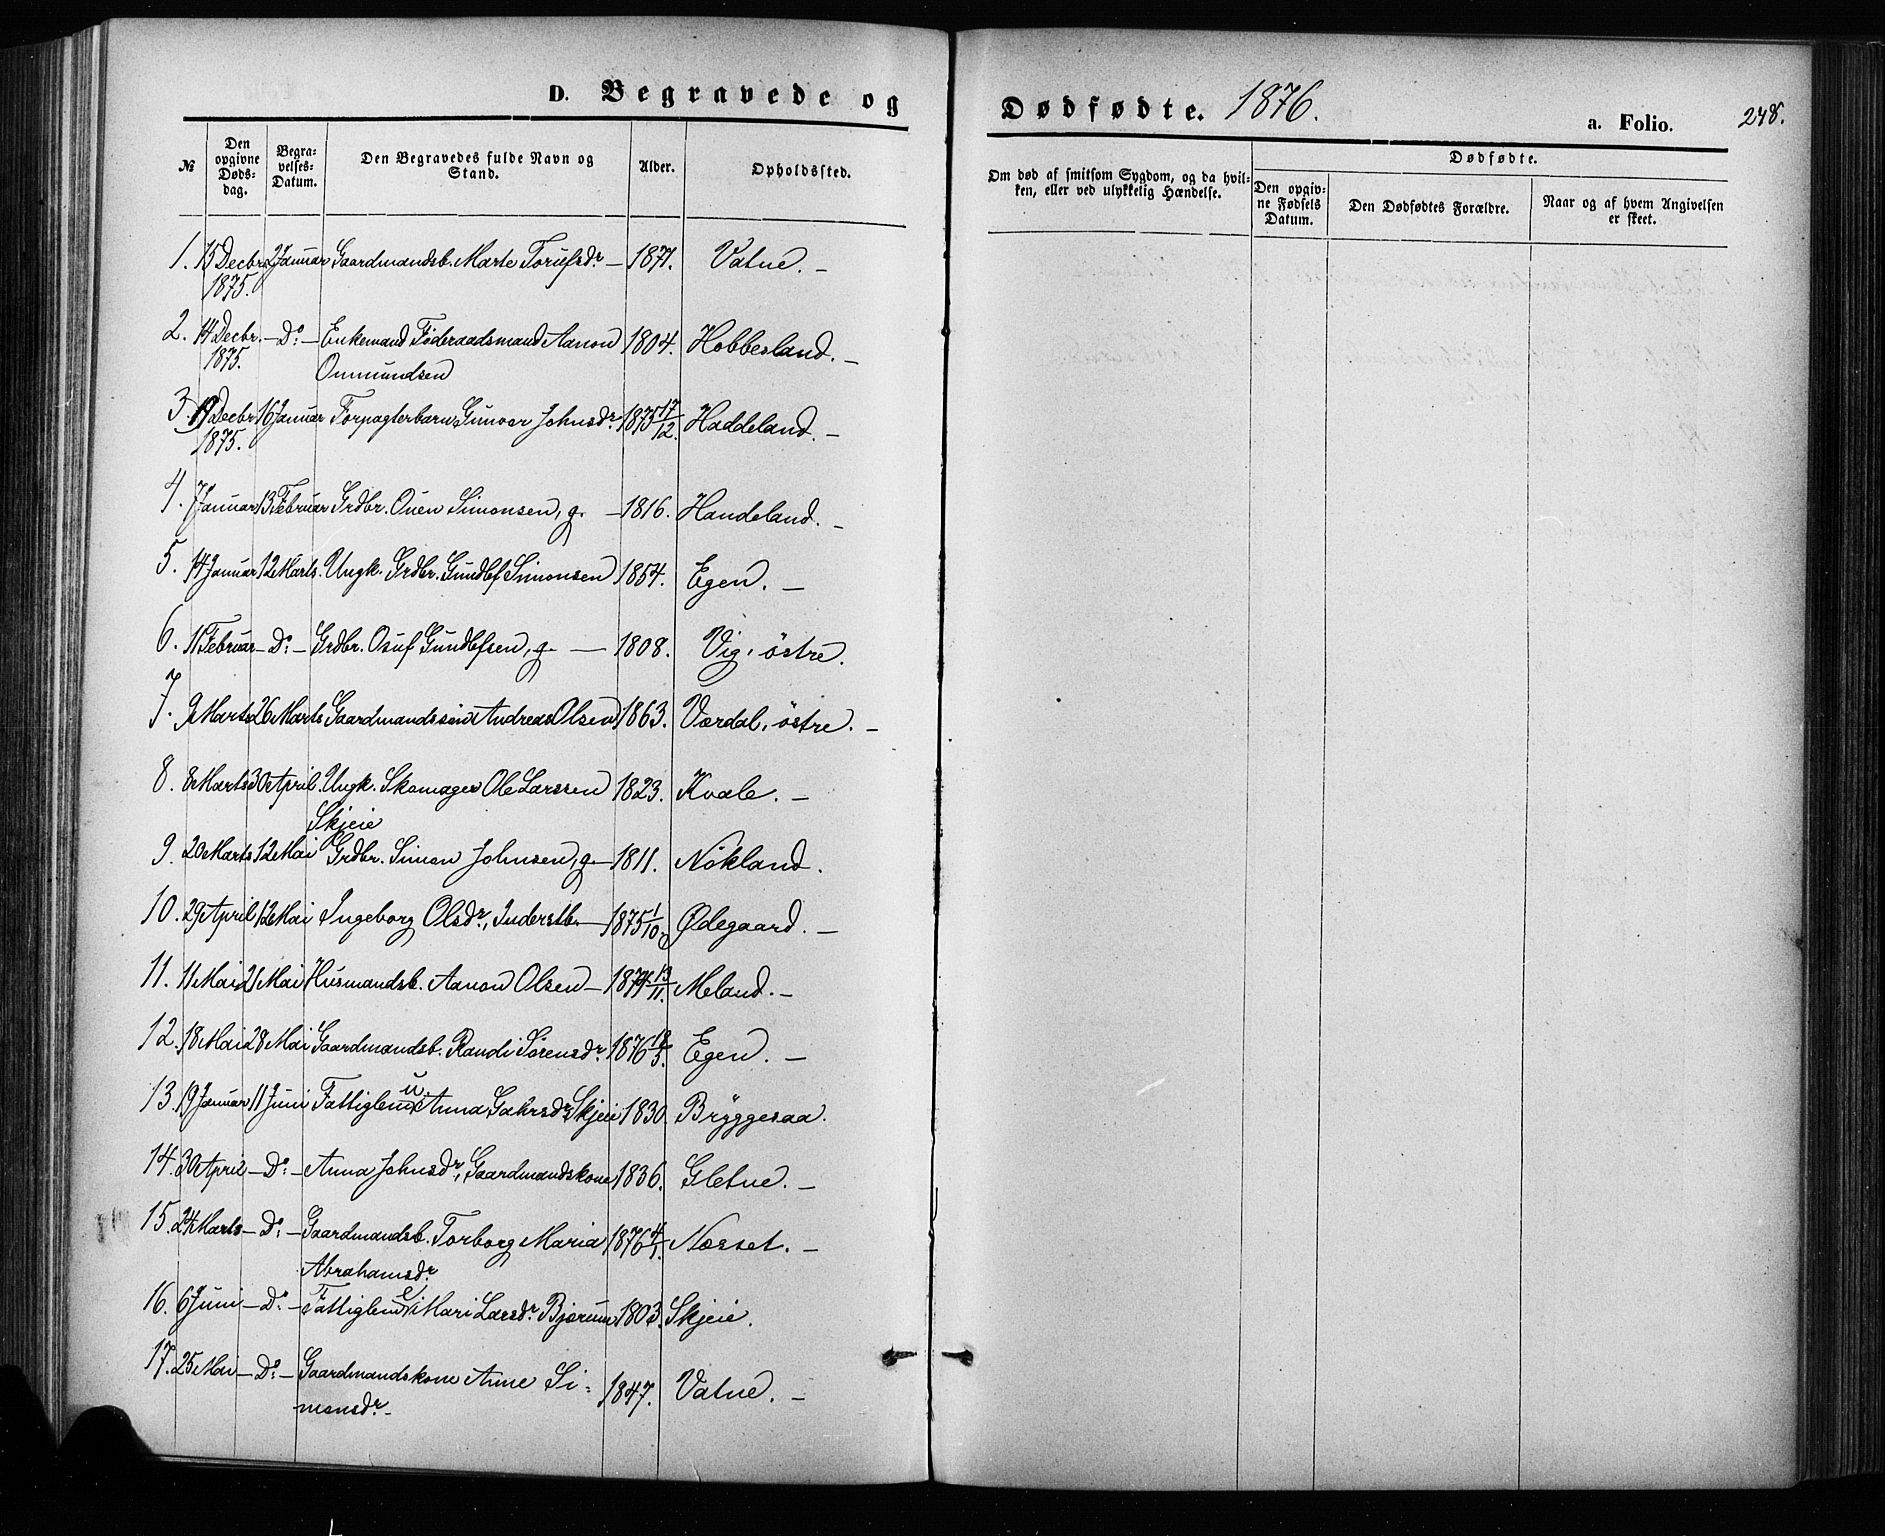 D. Begravede og Dødfødte. 1876.
a. Folio. 248.
№
Den opgivne Døds-dag.
Begra-velses-Datum.
Den Begravedes fulde Navn og Stand.
Alder.
Opholdssted.
Om død af smitsom Sygdom, og da hvil-ken, eller ved ulykkelig Hændelse.
Dødfødte.
Den opgiv-ne Fødsels Datum.
Den Dødfødtes Forældre.
Naar og af hvem Angivelsen er skeet.
1. 15 Decbr 2 Januar Gaardmandsb. Marte Toriefsdr. – 1871. Vatne. –
1875.
2. 14 Decbr. – Do: – Enkemand Føderaadsmand Aanon 1804. Hobbesland. –
1875. Onmundsen
3. 19 Decbr 16 Januar Forpagterbarn Gunvor Johnsdr. 1875 17/12. Haddeland. –
1875.
4. 7 Januar 13 Februar Grdbr. Ouen Simonsen, g. – 1816. Handeland. –
5. 14 Januar 12 Marts. Ungk. Grdbr. Gundlef Simonsen 1854. Egen. –
6. 11 Februar – Do: – Grdbr. Osuf Gundlefsen, g. – 1808. Vig, östre.
7. 9 Marts 26 Marts Gaardmandssön Andreas Olsen 1863. Værdal, östre. –
8. 8 Marts 30 April Ungk. Skomager Ole Larssen 1823. Kvale. –
Skjeie
9. 20 Marts 12 Mai Grdbr. Simon Johnsen, g. – 1811. Nökland.
10. 29 April 12 Mai Ingeborg Olsdr., Inderstb. – 1875 1/10 Ødegaard. –
11. 11 Mai 21 Mai Husmandsb. Aanon Olsen – 1874 13/11. Meland. –
12. 18 Mai 28 Mai Gaardmandsb. Randi Sörensdr. 1876 18/5. Egen. –
13. 19 Januar 11 Juni Fattiglem u. Anna Gahrsdr. Skjeie 1830. Bryggesaa.
14. 30 April – Do: – Anna Johnsdr., Gaardmandskone 1836. Gletne. –
15. 24 Marts – Do: – Gaardmandsb. Torborg Maria 1876 4/1. Næsset. –
Abrahamsdr.
16. 6 Juni – Do: – Fattiglem e. Mari Larsdr. Bjørum 1803. Skjeie.
17. 25 Mai – Do: – Gaardmandskone Anne Si- 1847. Vatne. –
monsdr. –